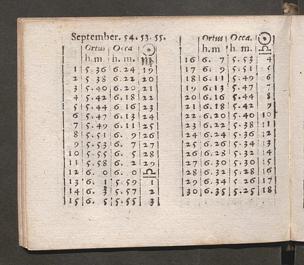 September. 54. 53. 55.
Ortus Occa. ☉
h. m. h. m. ♍
1 5 36 6. 24 19
2 5 38 6. 22 20
3 5. 40 6. 20 21
4 5. 42 6. 18 22
5 5. 44 6. 16 23
6 5. 47 6. 13 24
7 5. 49 6. 11 25
8 5. 51 6. 9 26
9 5. 53 6. 7 27
10 5. 55 6. 5 28
11 5. 58 6. 2 29
12 6. 0 6. 0 ♎
13 6. 1 5. 59 1
14 6. 3 5. 57 2
15 6. 5 5. 55 3
Ortus Occa. ☉
h. m h. m. ♎
16 6. 7 5. 53 4
17 6. 9 5. 51 5
18 6. 11 5. 49 6
19 6. 13 5. 47 7
20 6. 16 5. 44 8
21 6. 18 5. 42 9
22 6. 20 5. 40 10
23 6. 22 5. 38 11
24 6. 24 5. 36 12
25 6. 26 5. 34 13
26 6. 28 5. 32 14
27 6. 30 5. 30 15
28 6. 32 5. 28 16
29 6. 34 5. 26 17
30 6. 35 5. 25 18